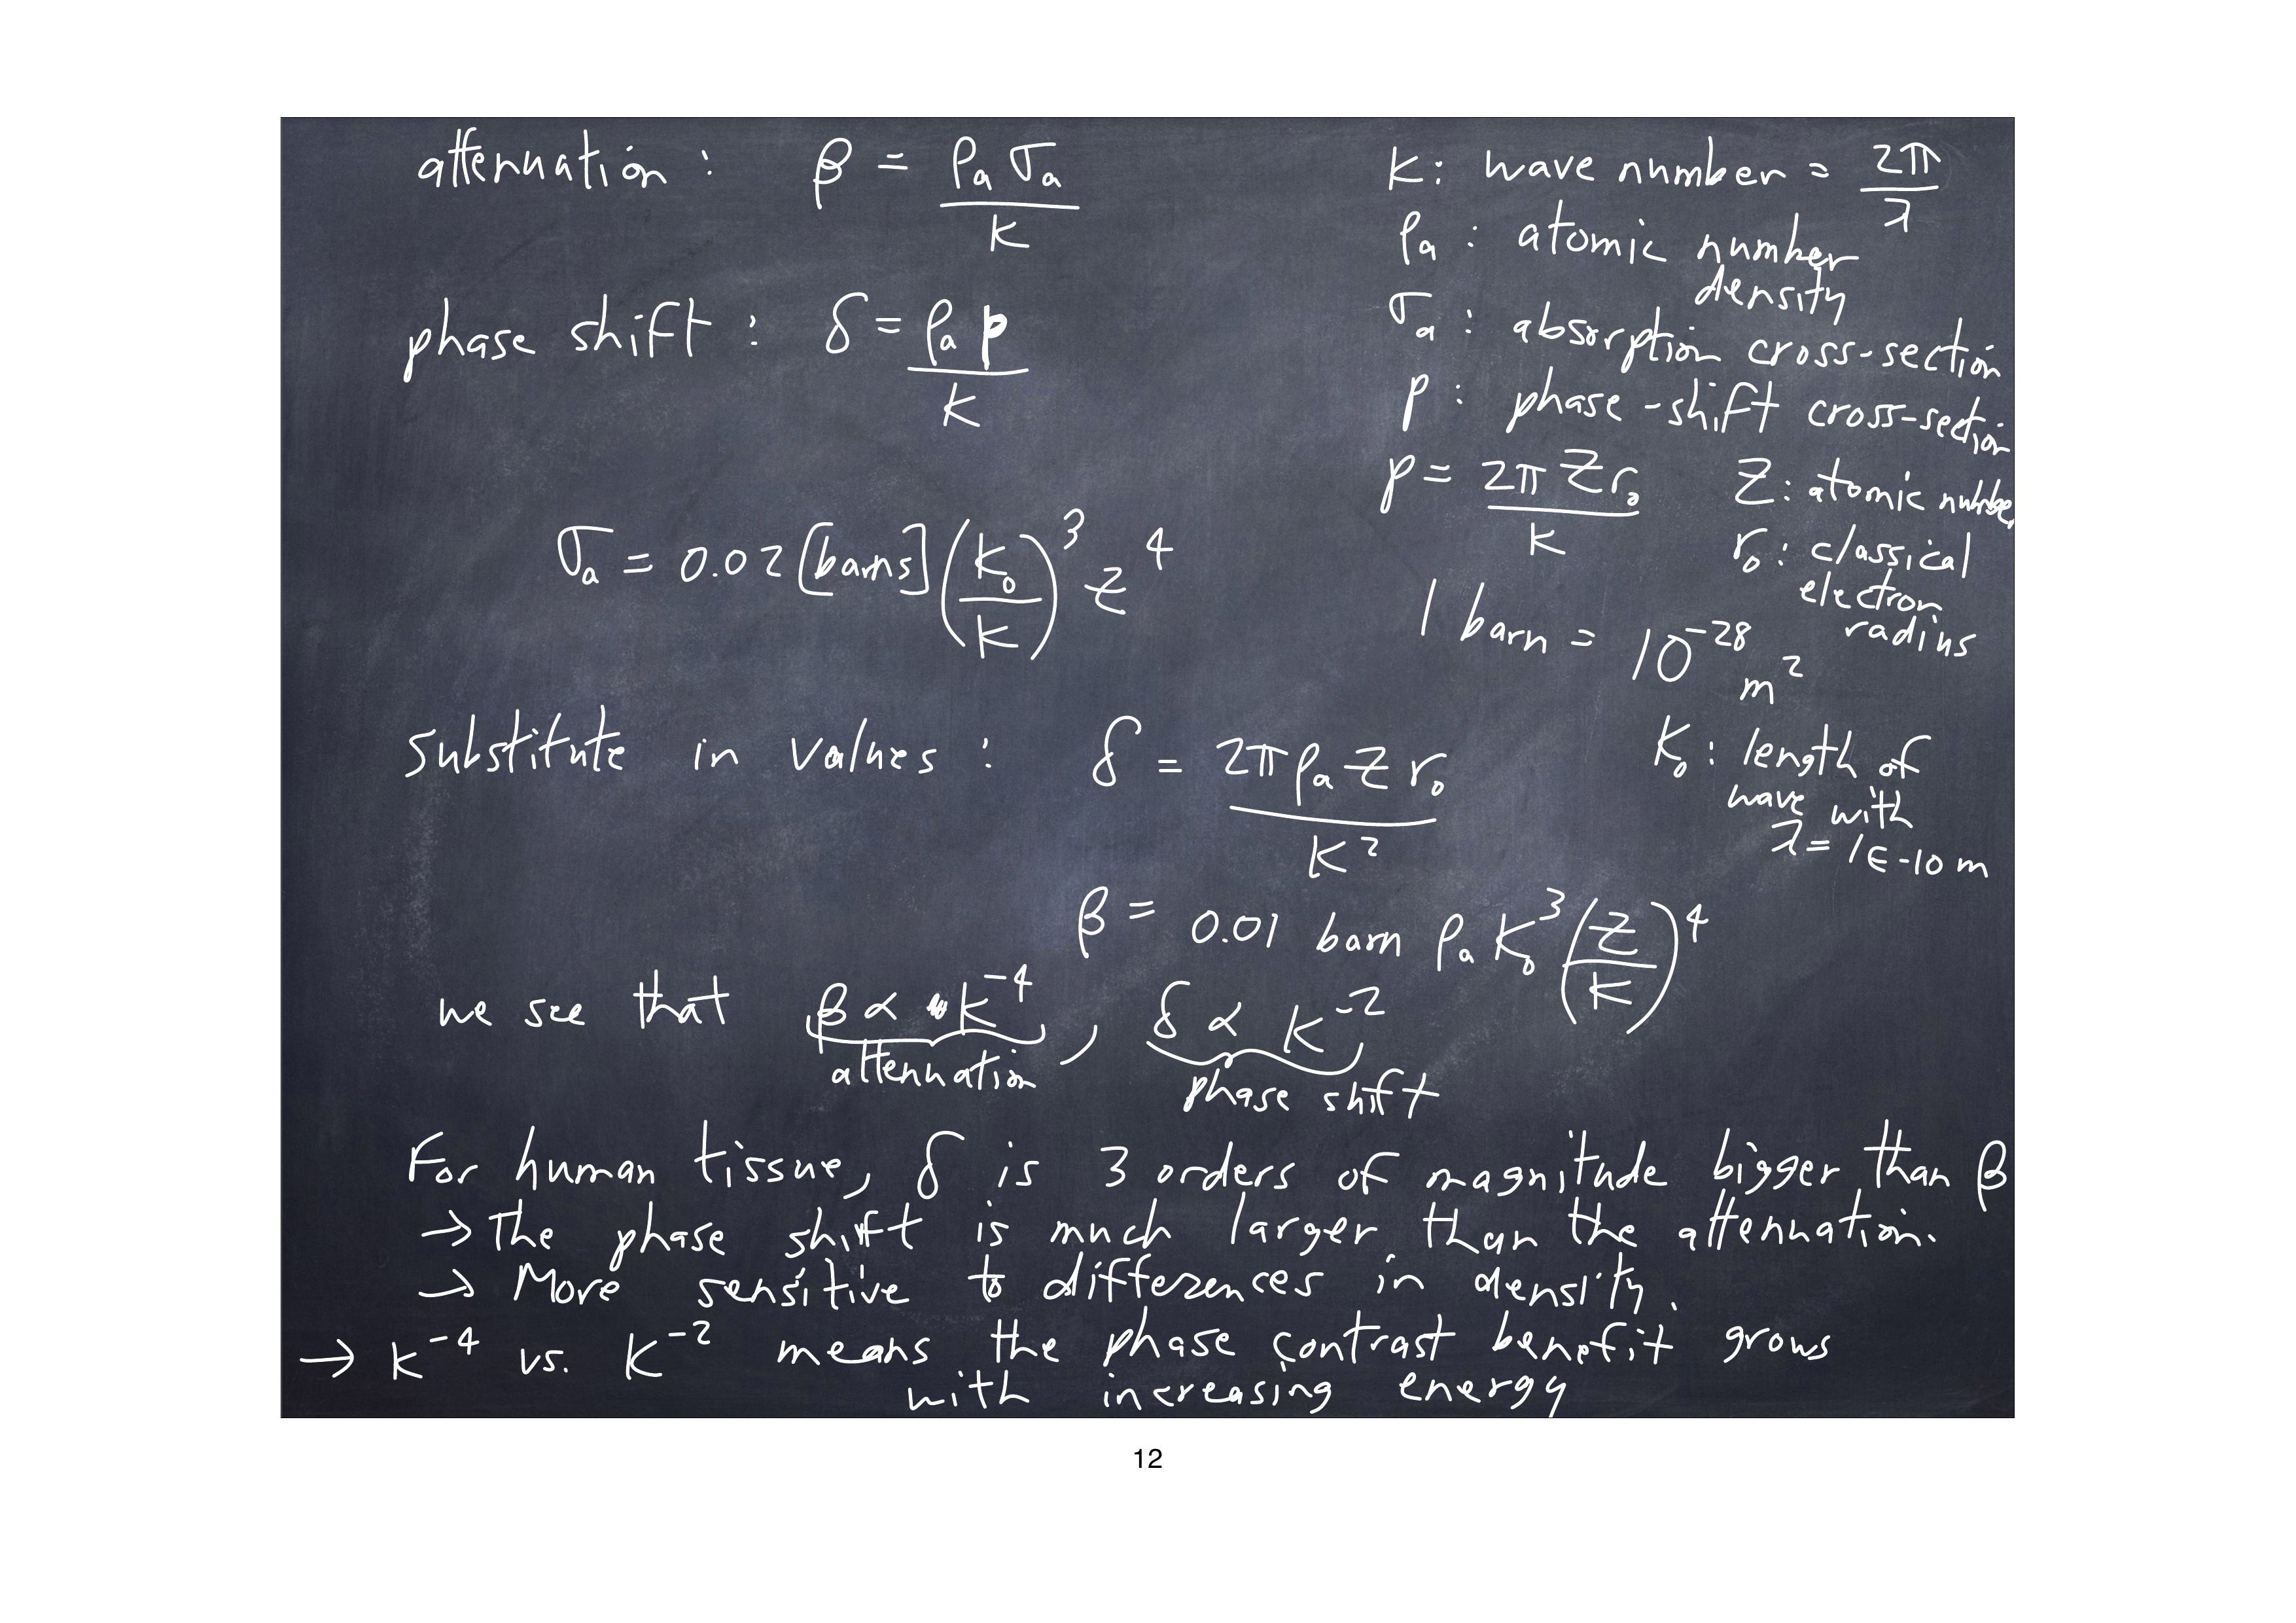 attenuation : β = ρa σa / k
k : wave number = 2π / λ
ρa : atomic number density
phase shift : δ = ρa p / k
σa : absorption cross-section
p : phase-shift cross-section
p = 2π Z r₀ / k
Z : atomic number
r₀ : classical electron radius
σa = 0.02 [barns] (k₀ / k)³ Z⁴
1 barn = 10⁻²⁸ m²
k₀ : length of wave with λ = 1E-10 m
substitute in values : δ = 2π ρa Z r₀ / k²
β = 0.01 barn ρa k₀³ (Z / k)⁴
we see that β ∝ k⁻⁴ , δ ∝ k⁻²
attenuation phase shift
For human tissue, δ is 3 orders of magnitude bigger than β
→ The phase shift is much larger than the attenuation.
→ More sensitive to differences in density.
→ k⁻⁴ vs. k⁻² means the phase contrast benefit grows
with increasing energy
12